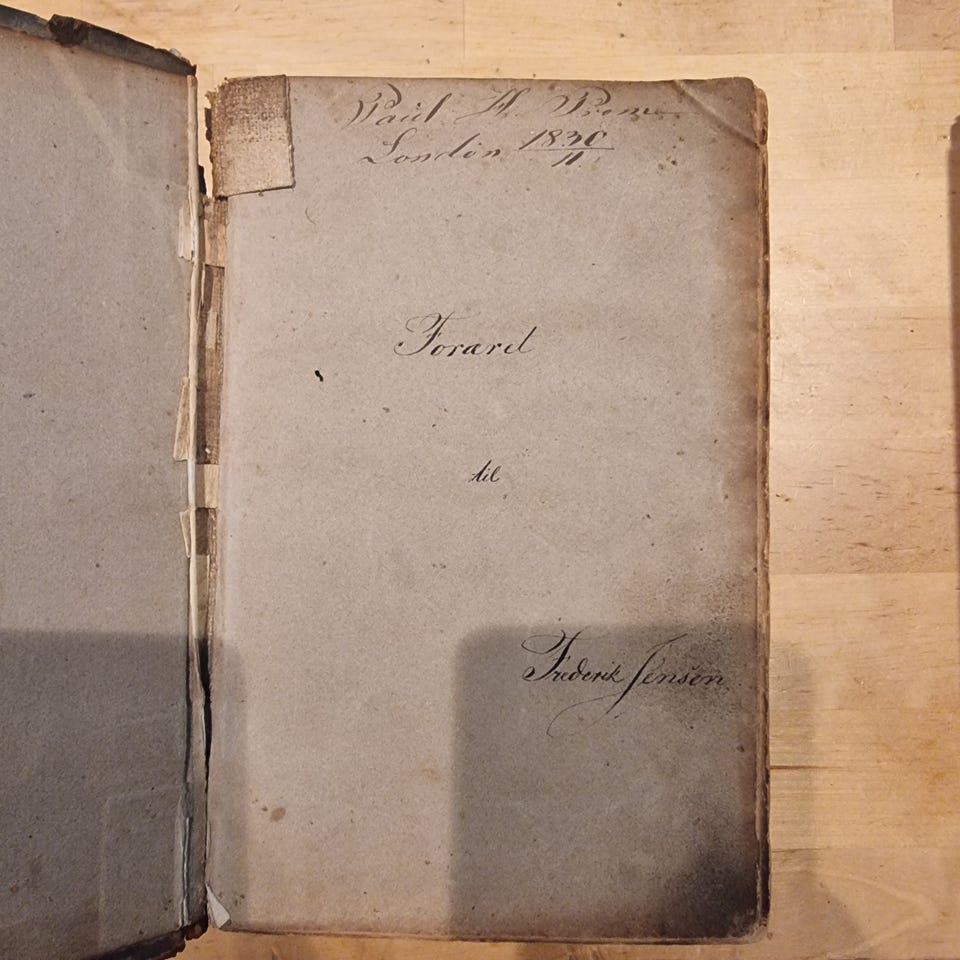 Paul H.
London 1830
11
Foræret
til
Frederik Jensen